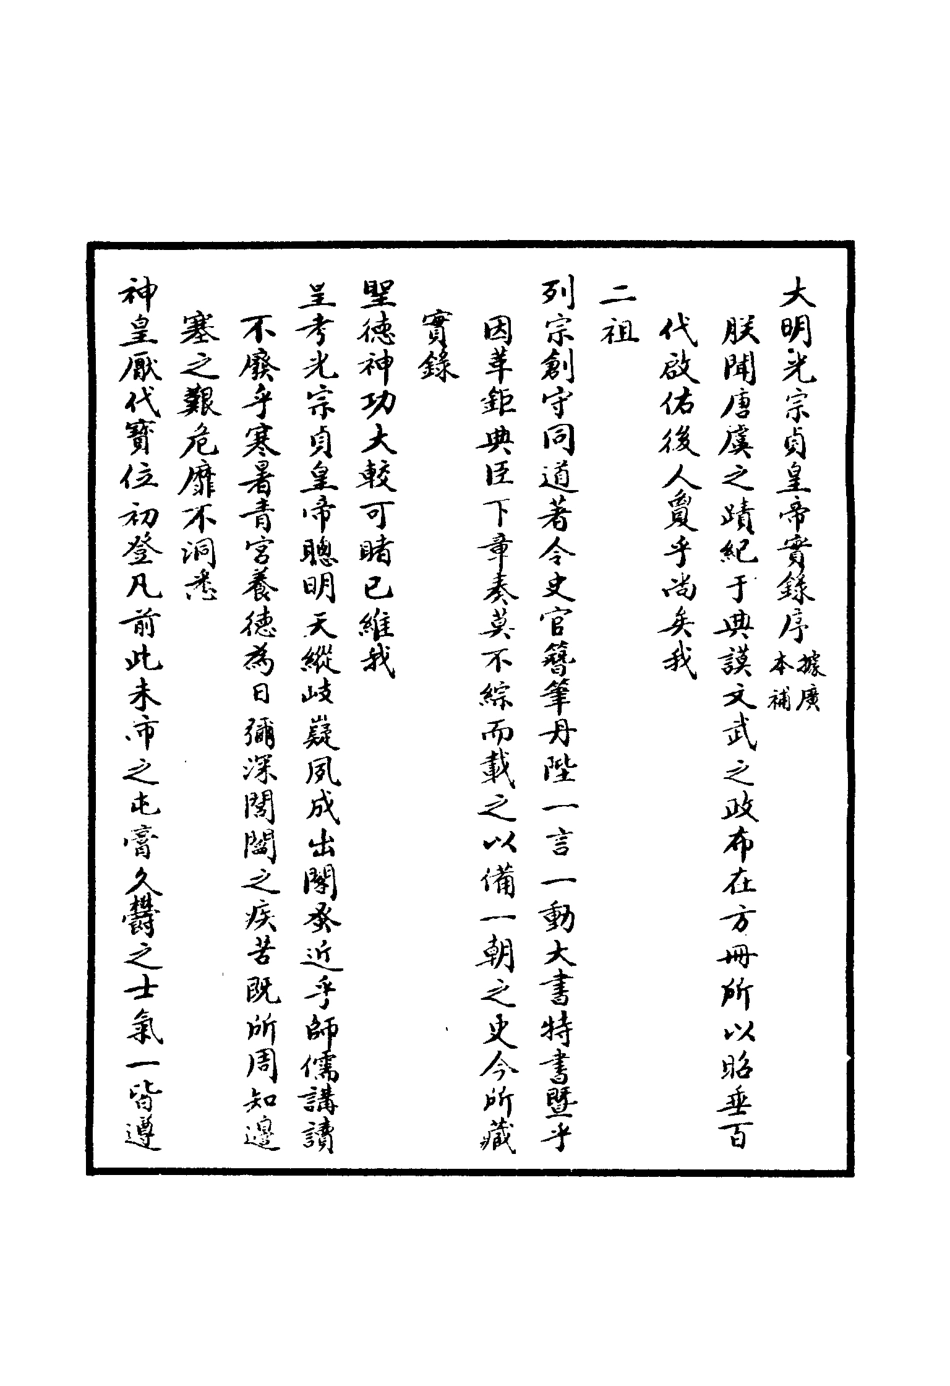 大明光宗貞皇帝實錄序據廣本補
朕聞唐虞之蹟紀于典謨文武之政布在方冊所以昭垂百
代啟佑後人敻乎尚矣我
二祖
列宗創守同道著令史官簪筆丹陛一言一動大書特書暨乎
因革鉅典臣下章奏莫不綜而載之以備一朝之史今所藏
實錄
聖德神功大較可睹已維我
皇考光宗貞皇帝聰明天縱岐嶷夙成出閣發近乎師儒講讀
不廢乎寒暑青宮養德為日彌深閭閻之疾苦既所周知邊
塞之艱危靡不洞悉
神皇厭代寶位初登凡前此未沛之屯膏久鬱之士氣一皆遵